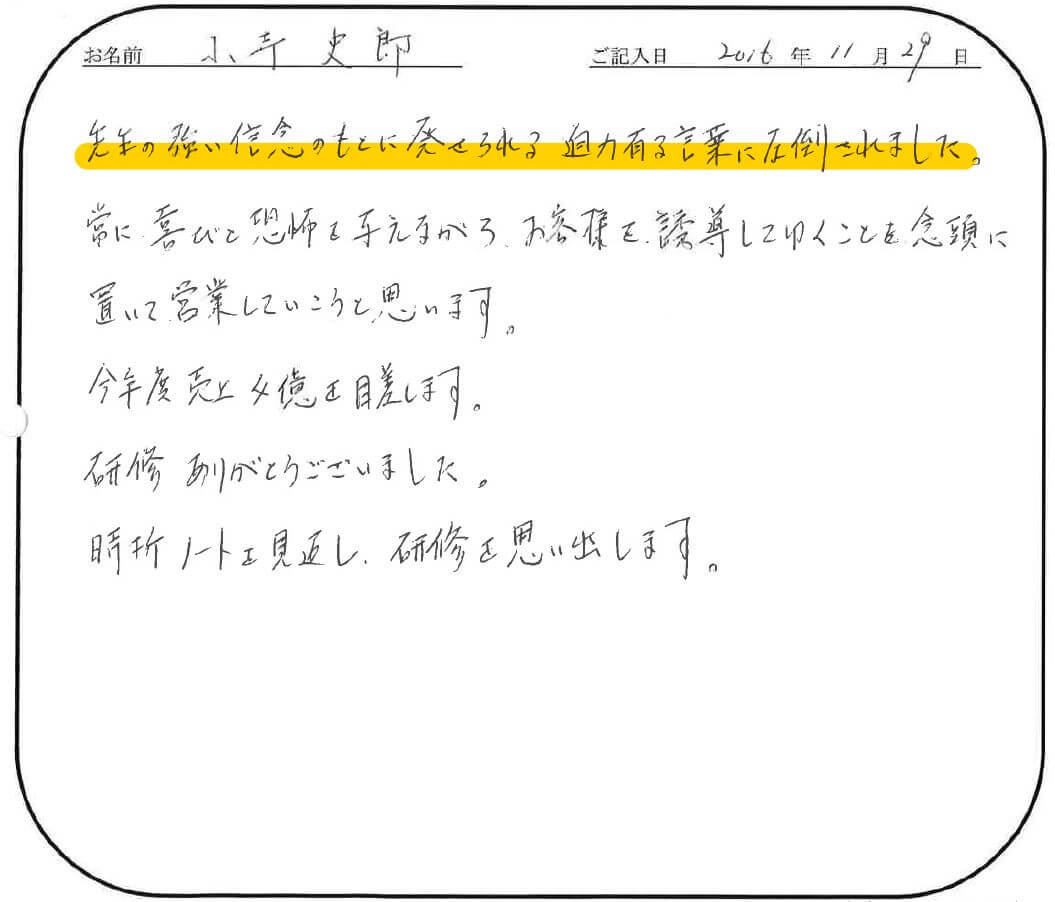 お名前 小寺 史郎 ご記入日 2016 年 11 月 29 日
先生の強い信念のもとに発せられる 迫力有る言葉に圧倒されました。
常に喜びと恐怖を与えながら、お客様を誘導して行くことを念頭に
置いて営業していこうと思います。
今年度売上4億を目差します。
研修 ありがとうございました。
時折ノートを見返し、研修を思い出します。